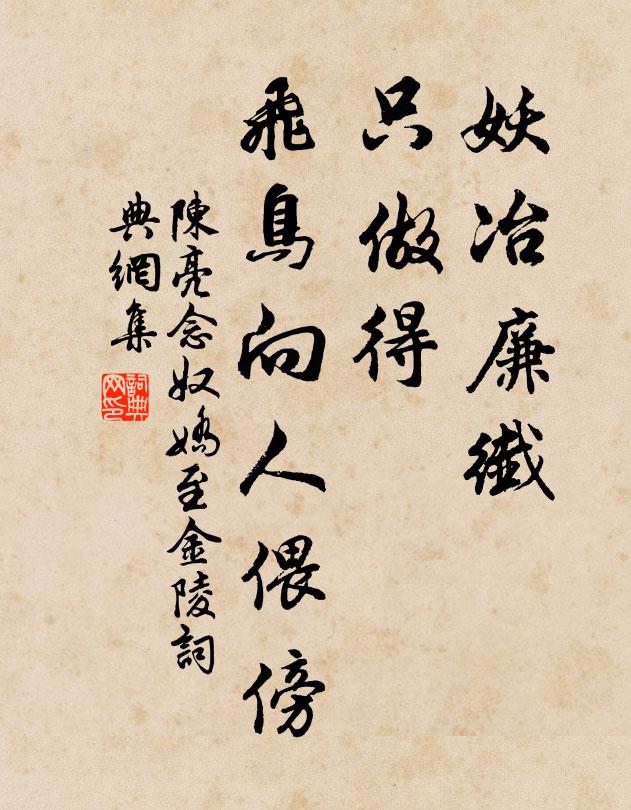 妖冶廉纖
只做得
飛鳥向人偎傍
陳亮念奴嬌至金陵詞
典網集
詞典網印